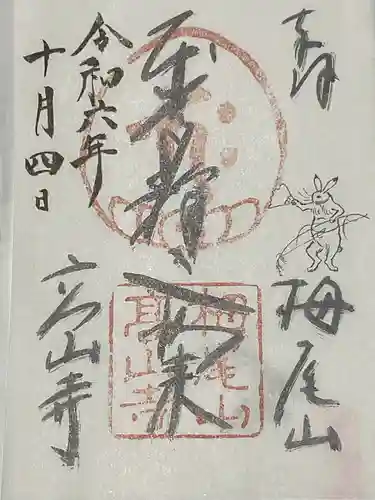 奉拝
栂尾山
阿弥陀如来
栂尾山
高山寺
高山寺
令和六年
十月四日